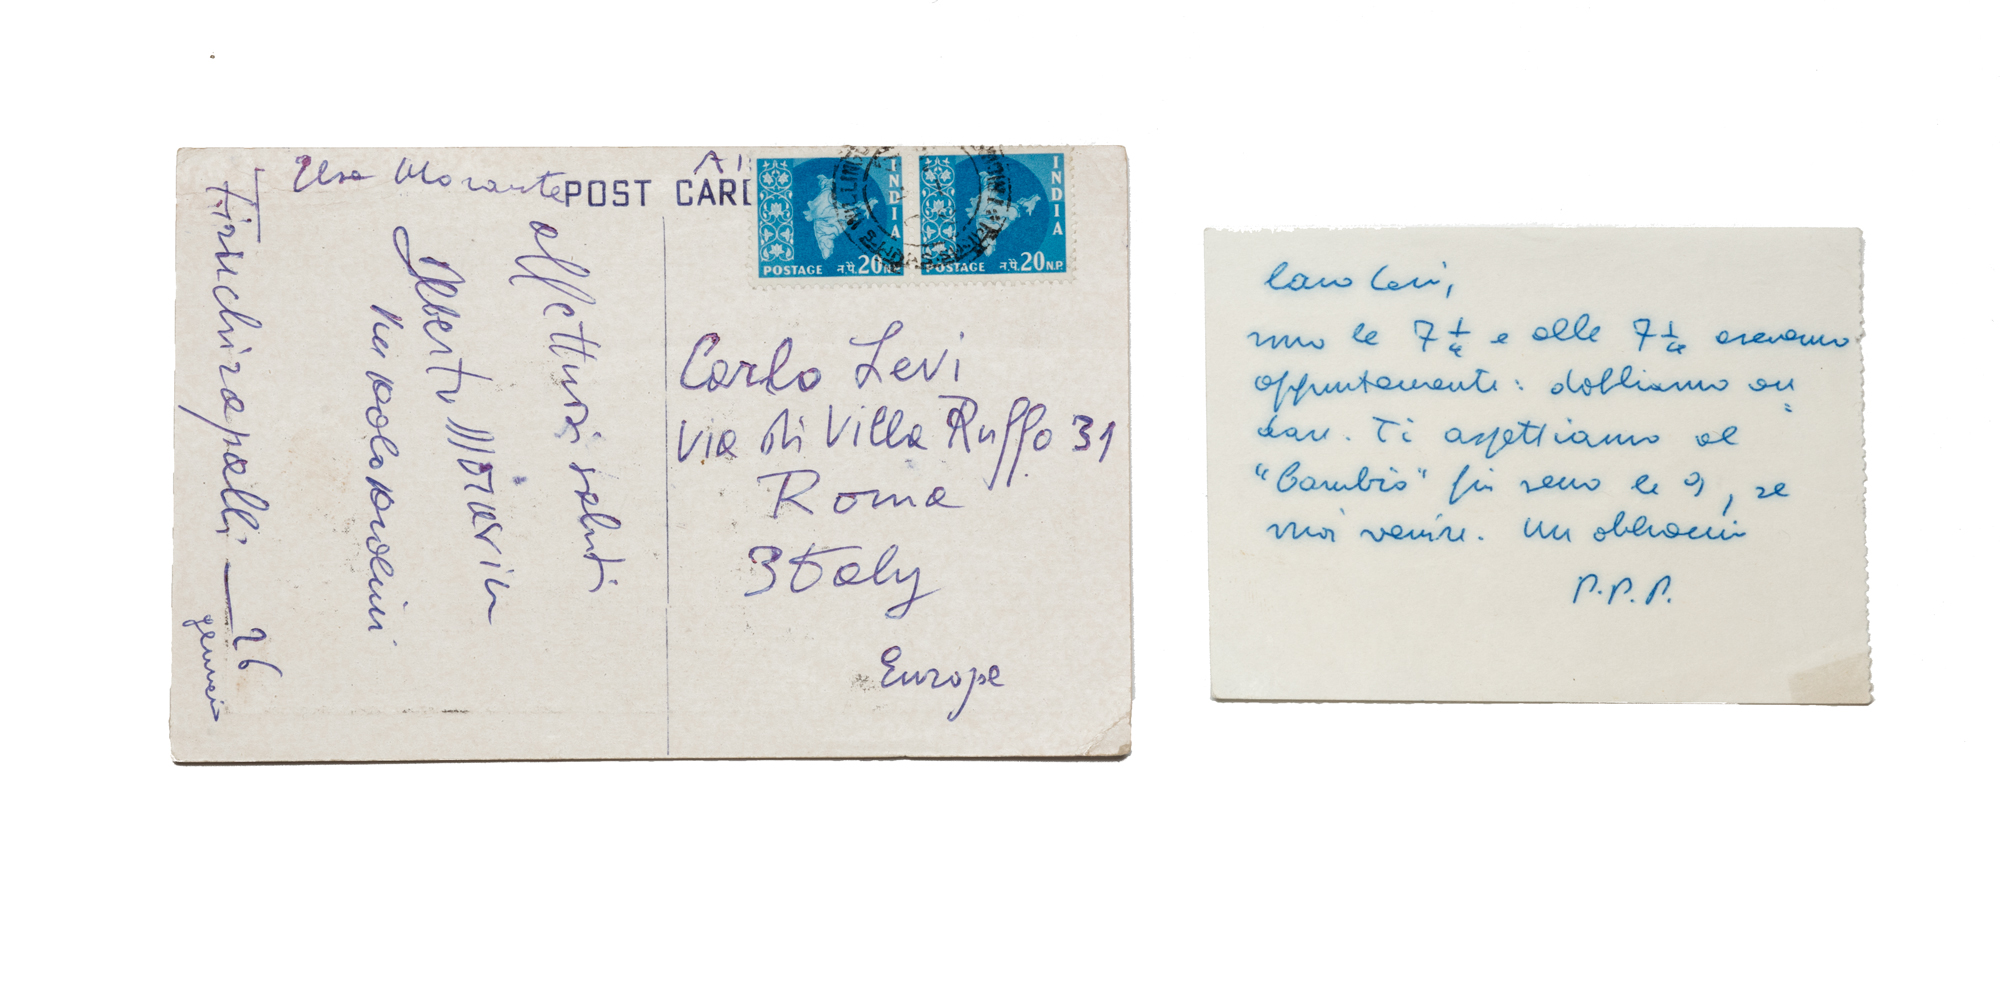 Elsa Morante
POST CARD
Tiruchirapalli — 26
gennaio
affettuosi saluti
Alberto Moravia
Pier Paolo Pasolini
INDIA
POSTAGE न.पै.20 N.P.
INDIA
POSTAGE न.पै.20 N.P.
Carlo Levi
via di Villa Ruffo 31
Roma
Italy
Europe
Caro Levi,
sono le 7 1/2 e alle 7 1/4 avevamo
appuntamento: dobbiamo an=
dare. Ti aspettiamo al
"Cambio" fin verso le 9, se
vuoi venire. Un abbraccio
P.P.P.